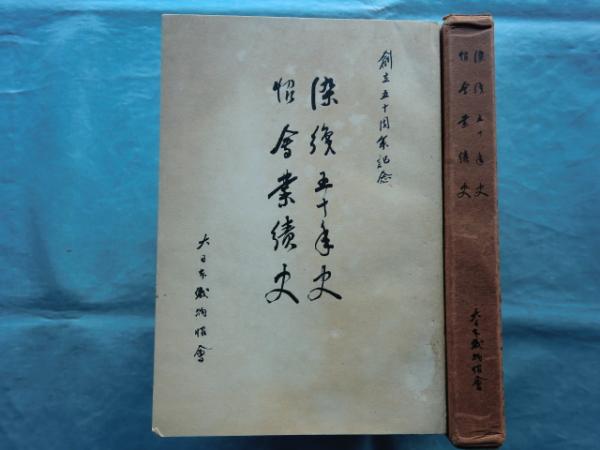 創立五十周年記念
染織五十年史
協會業績史
大日本織物協會
染織五十年史
協會業績史
大日本織物協會